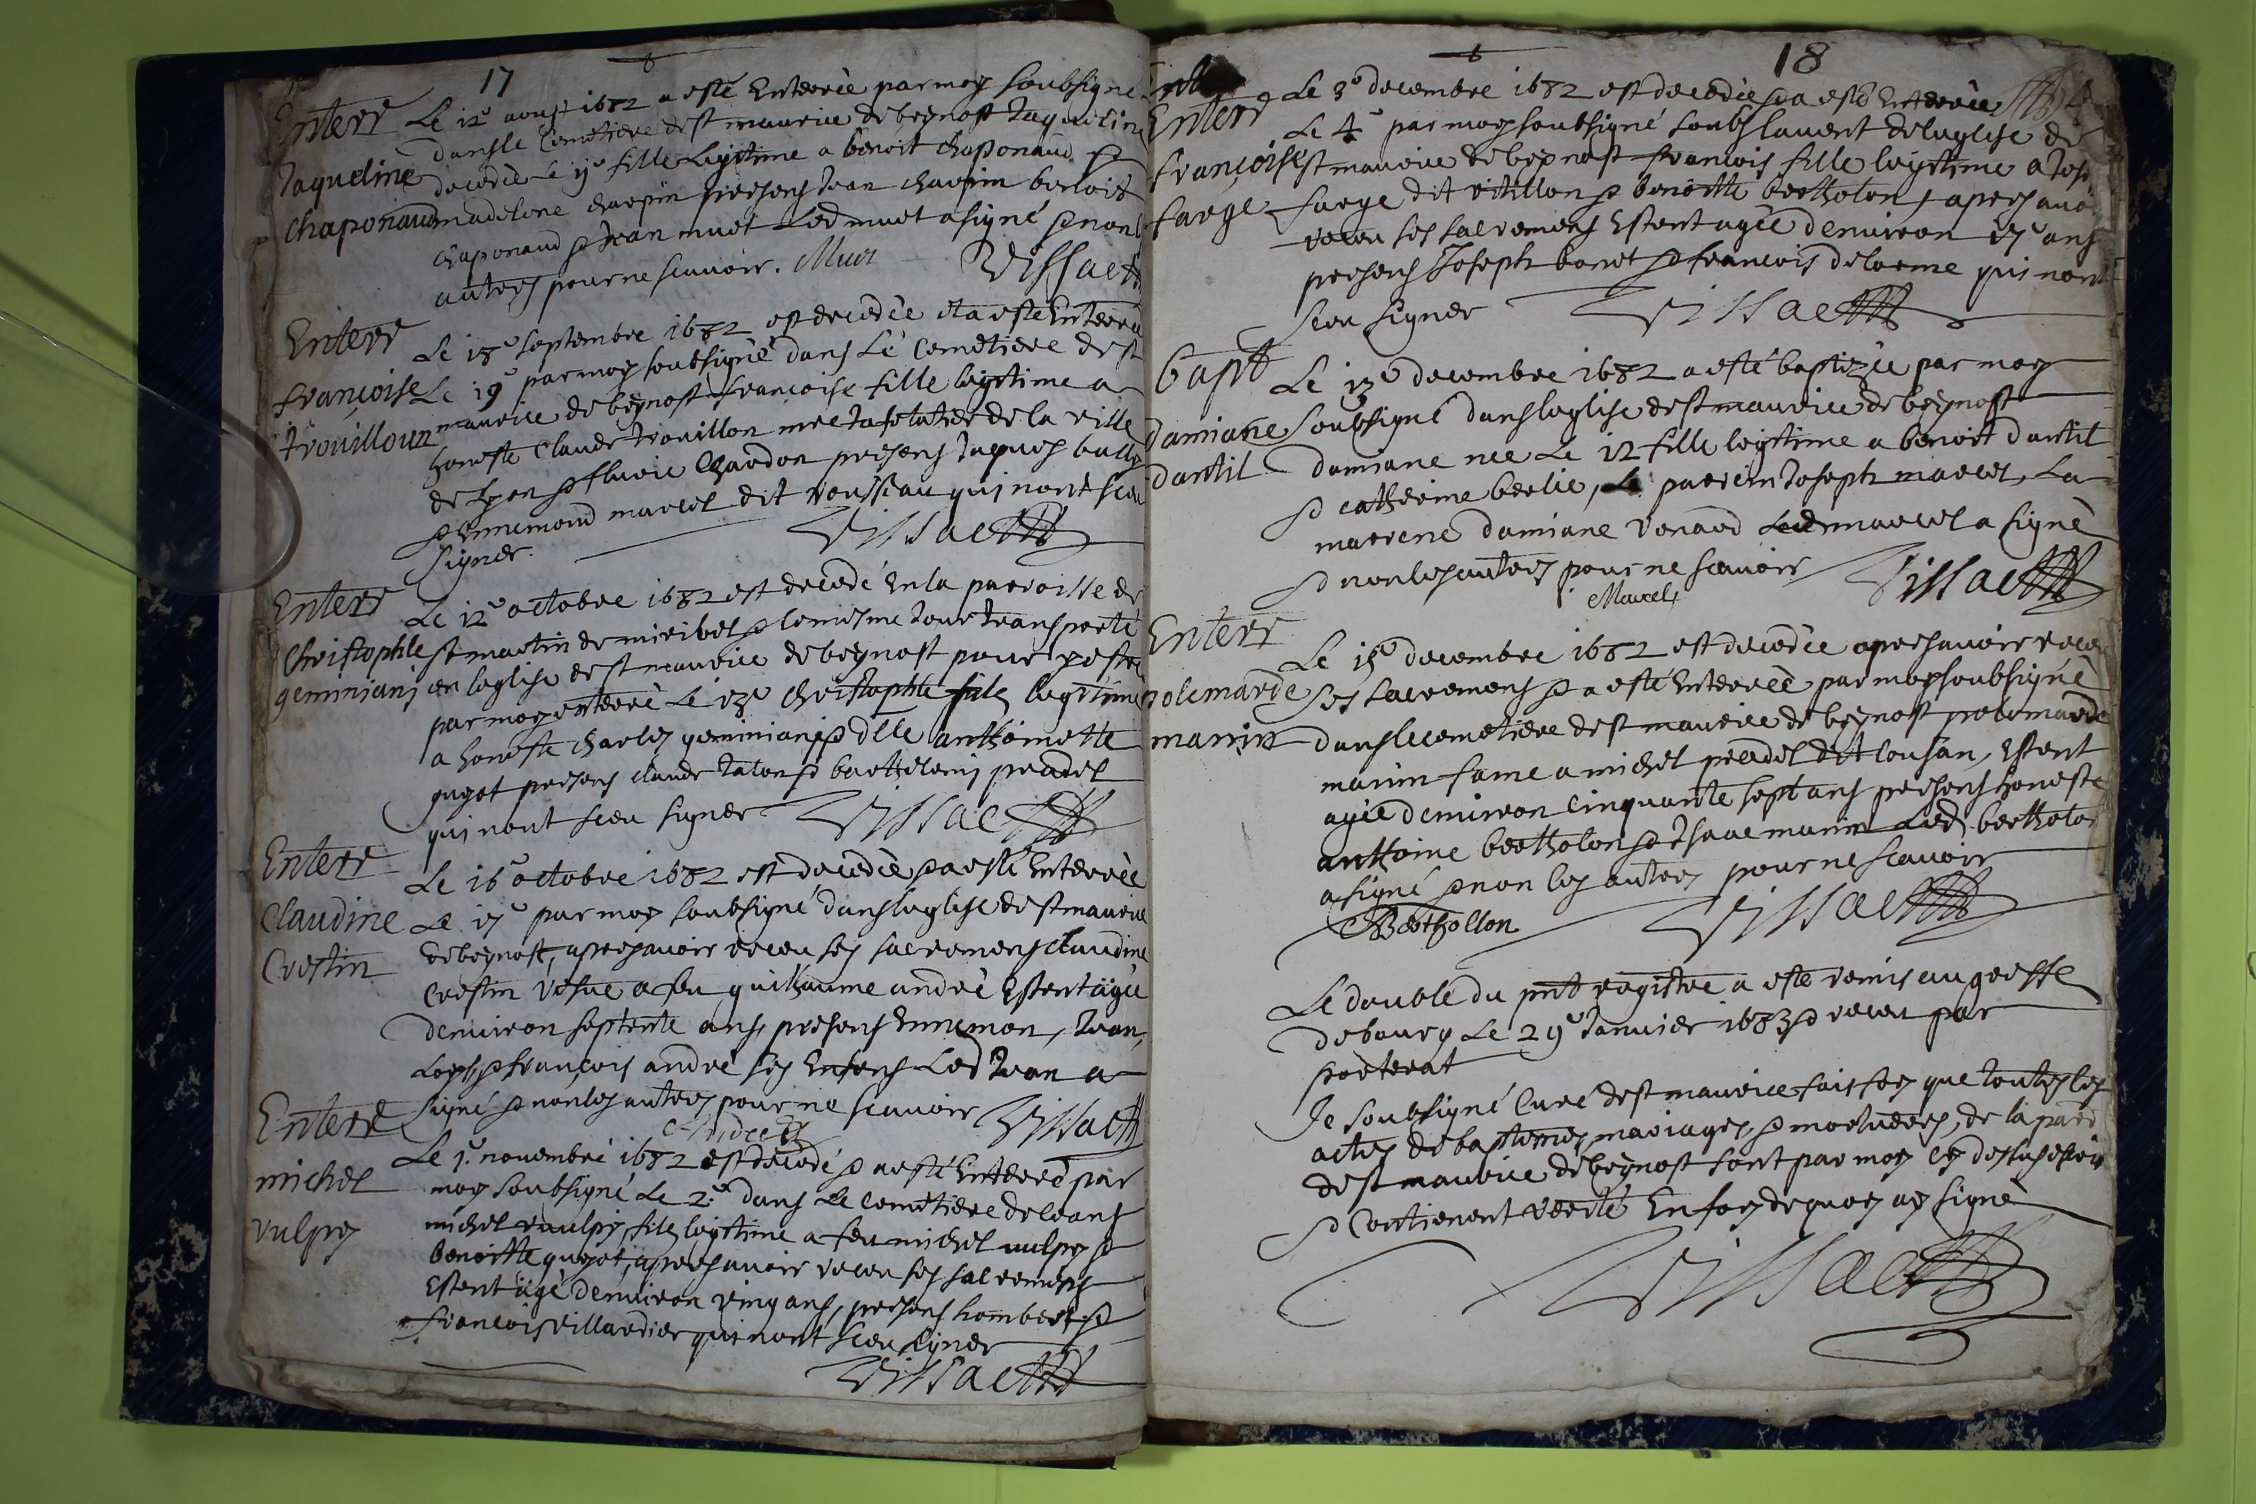 17
Enterr
Jaqueline
chaponaud
Le 12e aoust 1682 a esté Enterrée par moy soubsigné
dans le Cemetiere de st maurice de beynost Jaqueline
decedée le 11e fille legitime a benoit chaponaud et
madelene charpin presens Jean charpin benoist
chaponaud et Jean muet Led muet a signé et non les
autres pour ne scavoir. Muet Vissaet
Enterr
françoise
trouilloun
Le 18e septembre 1682 est decedée et a esté Enterrée
Le 19e par moy soubsigné dans Le Cemetiere de st
maurice de beynost francoise fille legitime a
honeste Claude trouillon mre tafetatier de la ville
de Lyon et fluvie Chardon presens Jaques bully
et Ennemond marcel dit rousseau qui nont sceu
signer. Vissaet
Enterr
Christophle
geminiani
Le 12e octobre 1682 est decedé En la parroisse de
st martin de miribel et le mesme Jour transporté
en leglise de st maurice de beynost pour y estre
par moy enterré Le 13e Christophle fils legitime
a honeste charles geminiani et dlle anthoinette
guyot presens claude Jalon et barthelemi pradel
qui nont sceu signer Vissaet
Enterr
Claudine
Crestin
Le 16e octobre 1682 est decedée et a esté Enterrée
Le 17e par moy soubsigné dans leglise de st maurice
de beynost, apres avoir receu ses sacremens claudine
Crestin vefue a feu guilhaume andré Estent agée
denviron septente ans, presens Ennemon, Jean,
Loys et françois andré ses Enfens Led Jean a
signé et non les autres pour ne scavoir Vissaet
Andre
Enterré
michel
vulpy
Le 1er novembre 1682 est decedé et a esté Enterré par
moy soubsigné Le 2e dans Le cemetiere de ceans
michel vulpy, fils legitime a feu michel vulpy et
benoitte guyot, apres avoir receu ses sacremens
Estent agé denviron vingt ans, presens hombert et
francois villardier qui nont sceu signer
Vissaet
18
Enterr
françoise
farge
Le 3e decembre 1682 est decedée et a esté Enterrée
Le 4e par moy soubsigné soubs lauvent de leglise de
st maurice de beynost francois fille legitime a Jose
farge dit vitillon et benoitte bertholon, apres avoir
receu ses sacremens Estent agée denviron 17 ans
presens Joseph bonet et francois delorme qui nont
sceu signer Vissaet
bapt
damiane
dantil
Le 13e decembre 1682 a esté baptizée par moy
soubsigné dans leglise de st maurice de beynost
damiane nee Le 12 fille legitime a benoit dantil
et catherine berlie, Le parrein Joseph marcel, La
marrene damiane renaud Led marcel a signé
et non les autres pour ne scavoir Vissaet
Marcel
Enterr
polemarde
manin
Le 15e decembre 1682 est decedée apres avoir receu
ses sacremens et a esté Enterrée par moy soubsigné
dans le cemetiere de st maurice de beynost polemarde
manin fame a michel pradel dit lousan, Estent
agée denviron Cinquante sept ans presens honeste
anthoine bertholon et Isaac manin Led. bertholon
a signé et non les autres pour ne scavoir
Berthollon Vissaet
Le double du pnt registre a esté remis au greffe
de bourg Le 29e Janvier 1683 et receu par
porterat
Je soubsigné Curé de st maurice fais foy que toutes les
actes de baptemes, mariages, et mortuaires, de la parr
de st maurice de beynost sont par moy cy dessus escrits
et Contienent verité En foy de quoy ay signé
Vissaet